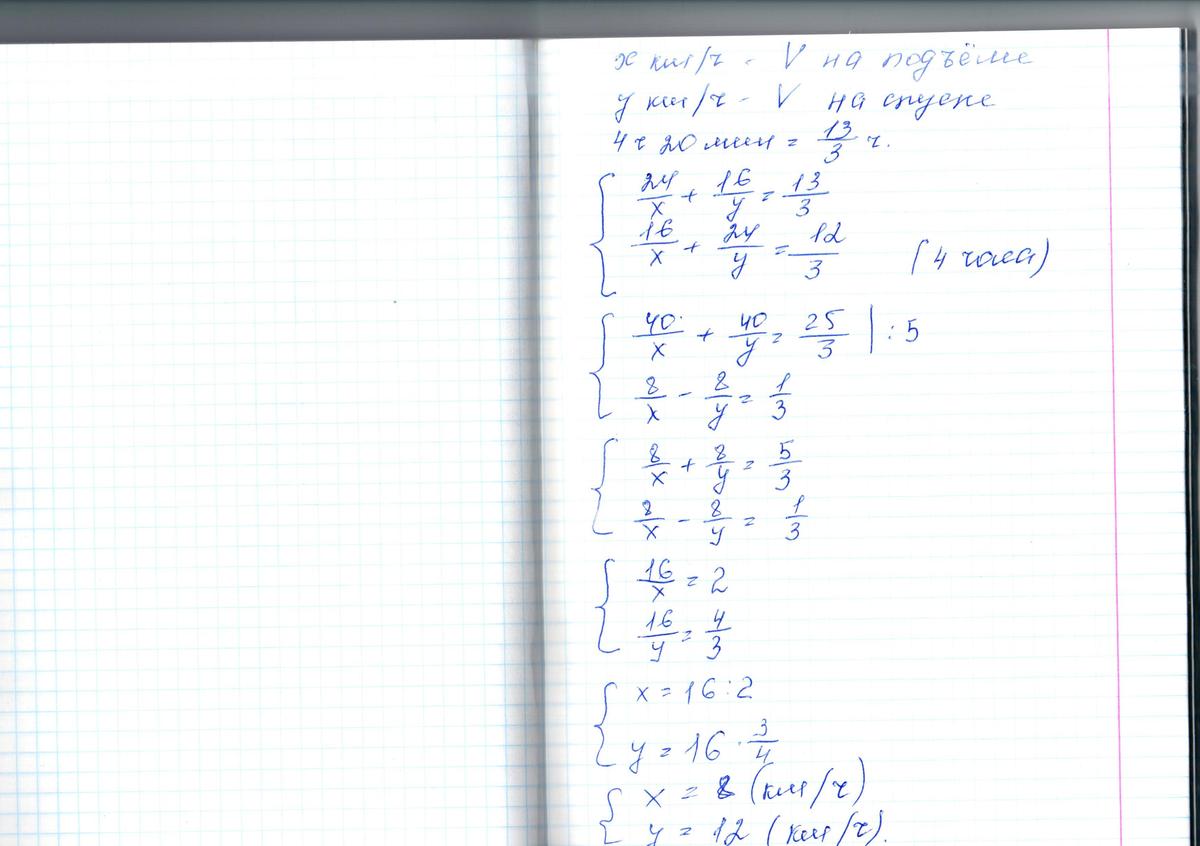 x км/ч - V на подъёме
y км/ч - V на спуске
4 ч 20 мин = 13/3 ч.
24/x + 16/y = 13/3
16/x + 24/y = 12/3 (4 часа)
40/x + 40/y = 25/3 | : 5
8/x - 8/y = 1/3
8/x + 8/y = 5/3
8/x - 8/y = 1/3
16/x = 2
16/y = 4/3
x = 16 : 2
y = 16 · 3/4
x = 8 (км/ч)
y = 12 (км/ч).